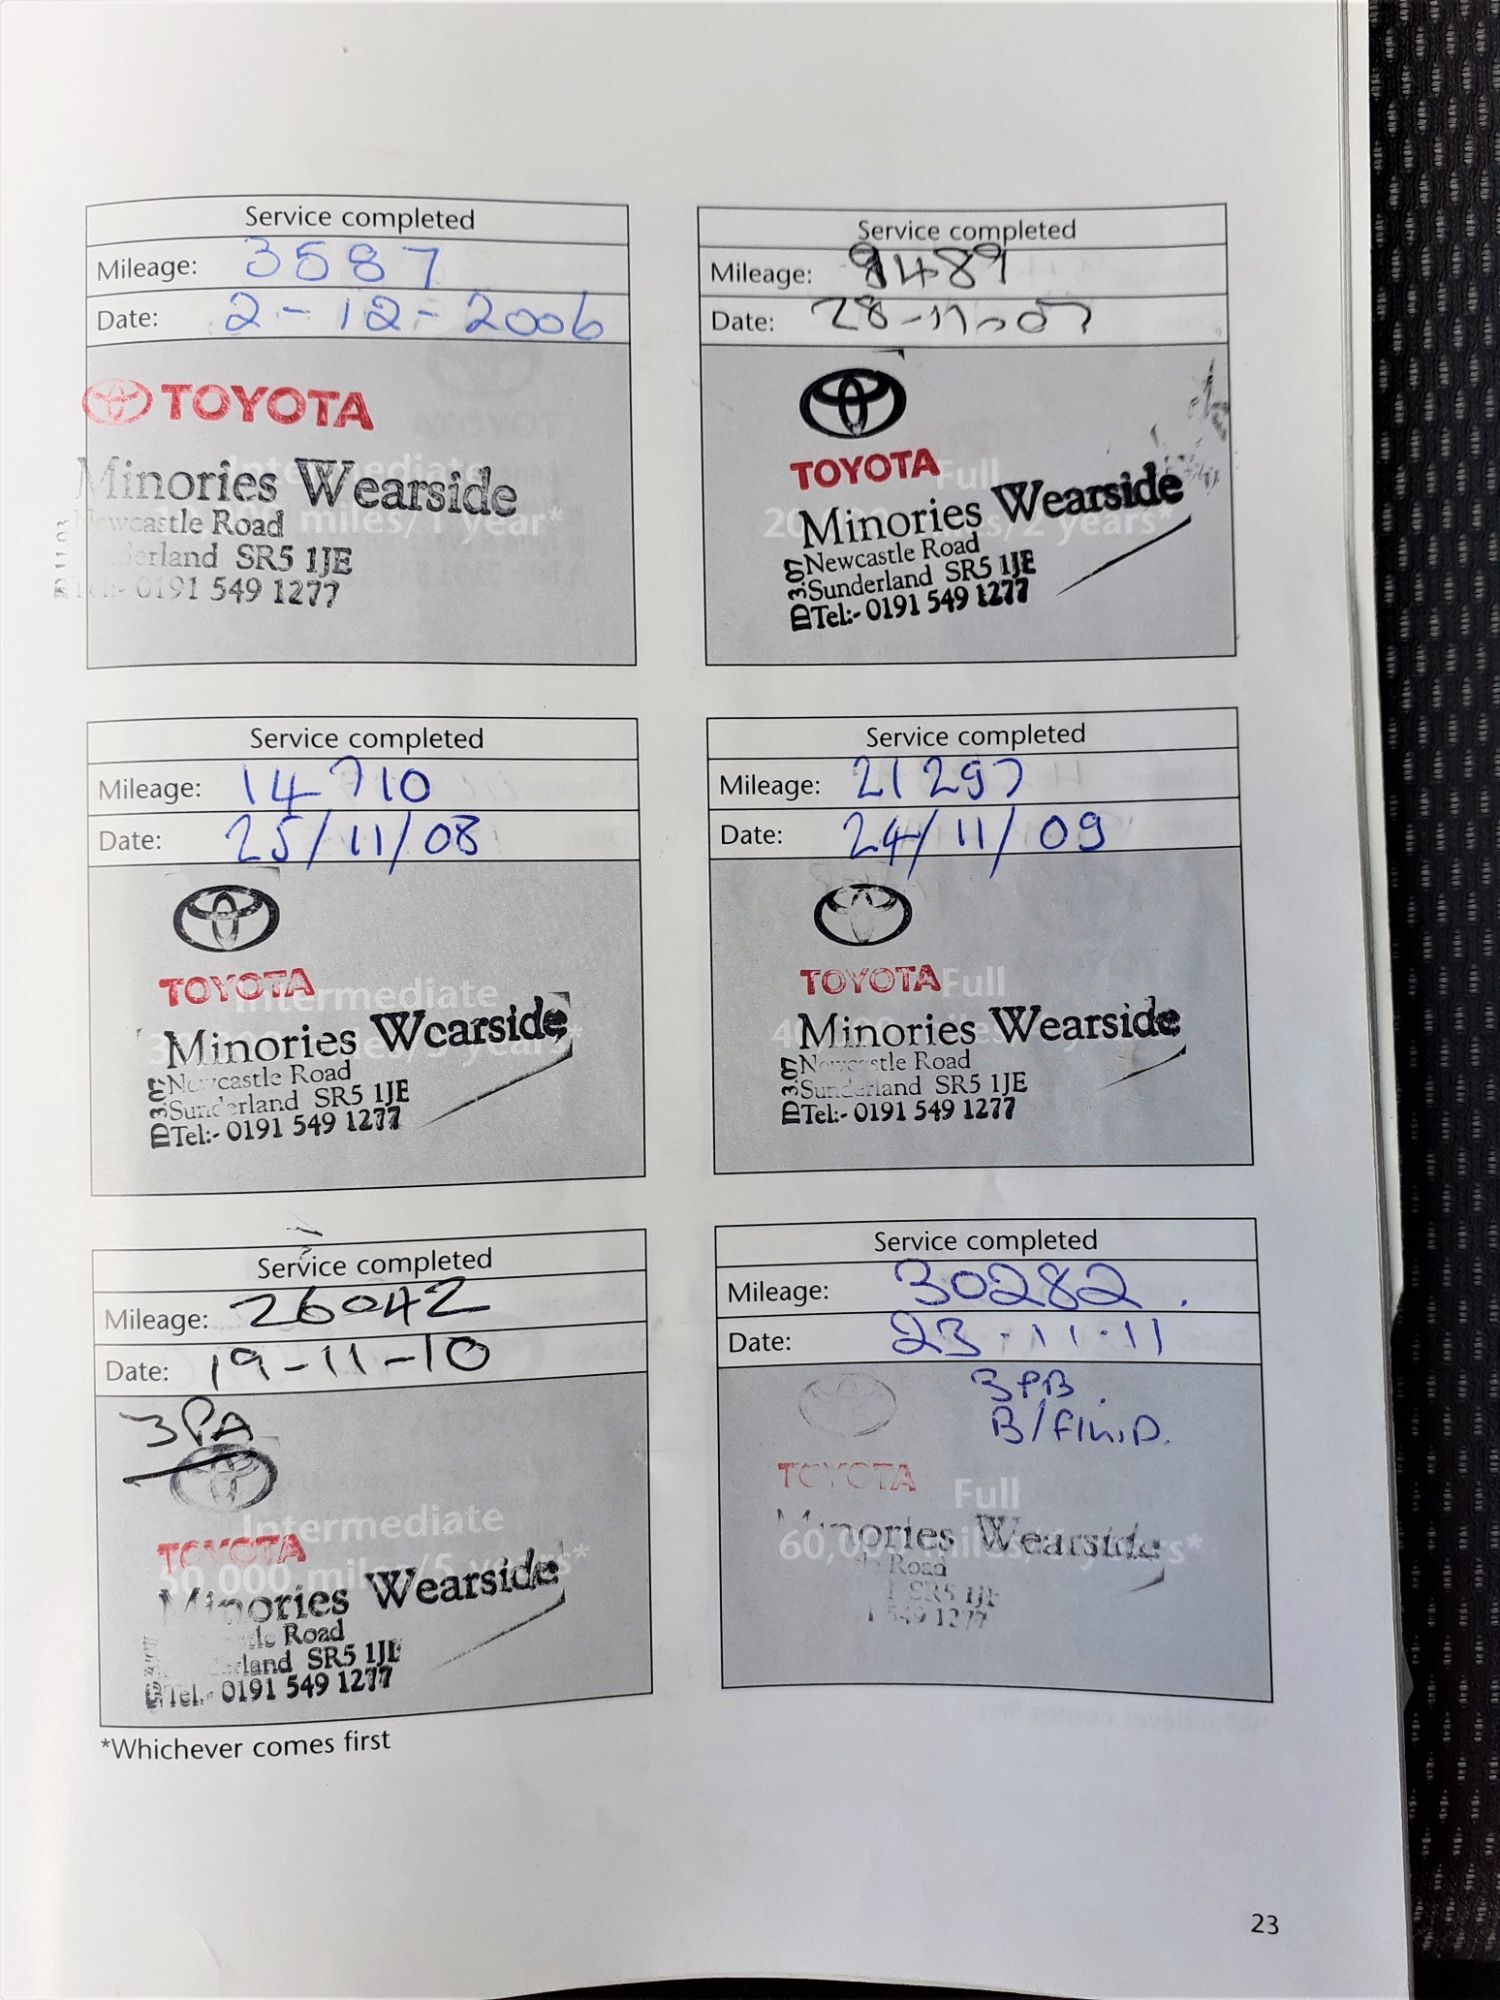 Service completed
Mileage: 3587
Date: 2-12-2006
TOYOTA
Intermediate
Minories Wearside
miles/1 year*
Newcastle Road
Sunderland SR5 1JE
Tel:- 0191 549 1277
Service completed
Mileage: 9489
Date: 28-11-07
TOYOTA
Full
Minories Wearside
Newcastle Road
Sunderland SR5 1JE
Tel:- 0191 549 1277
Service completed
Mileage: 14710
Date: 25/11/08
TOYOTA
Intermediate
Minories Wearside
Newcastle Road
Sunderland SR5 1JE
Tel:- 0191 549 1277
Service completed
Mileage: 21297
Date: 24/11/09
TOYOTA
Full
Minories Wearside
Newcastle Road
Sunderland SR5 1JE
Tel:- 0191 549 1277
Service completed
Mileage: 26042
Date: 19-11-10
3PA
TOYOTA
Intermediate
50,000 miles/5 years*
Minories Wearside
Road
SR5 1JE
Tel:- 0191 549 1277
Service completed
Mileage: 30282.
Date: 23.11.11
3PB.
TOYOTA
Full
Minories Wearside
Road
SR5 1JE
549 1277
*Whichever comes first
23